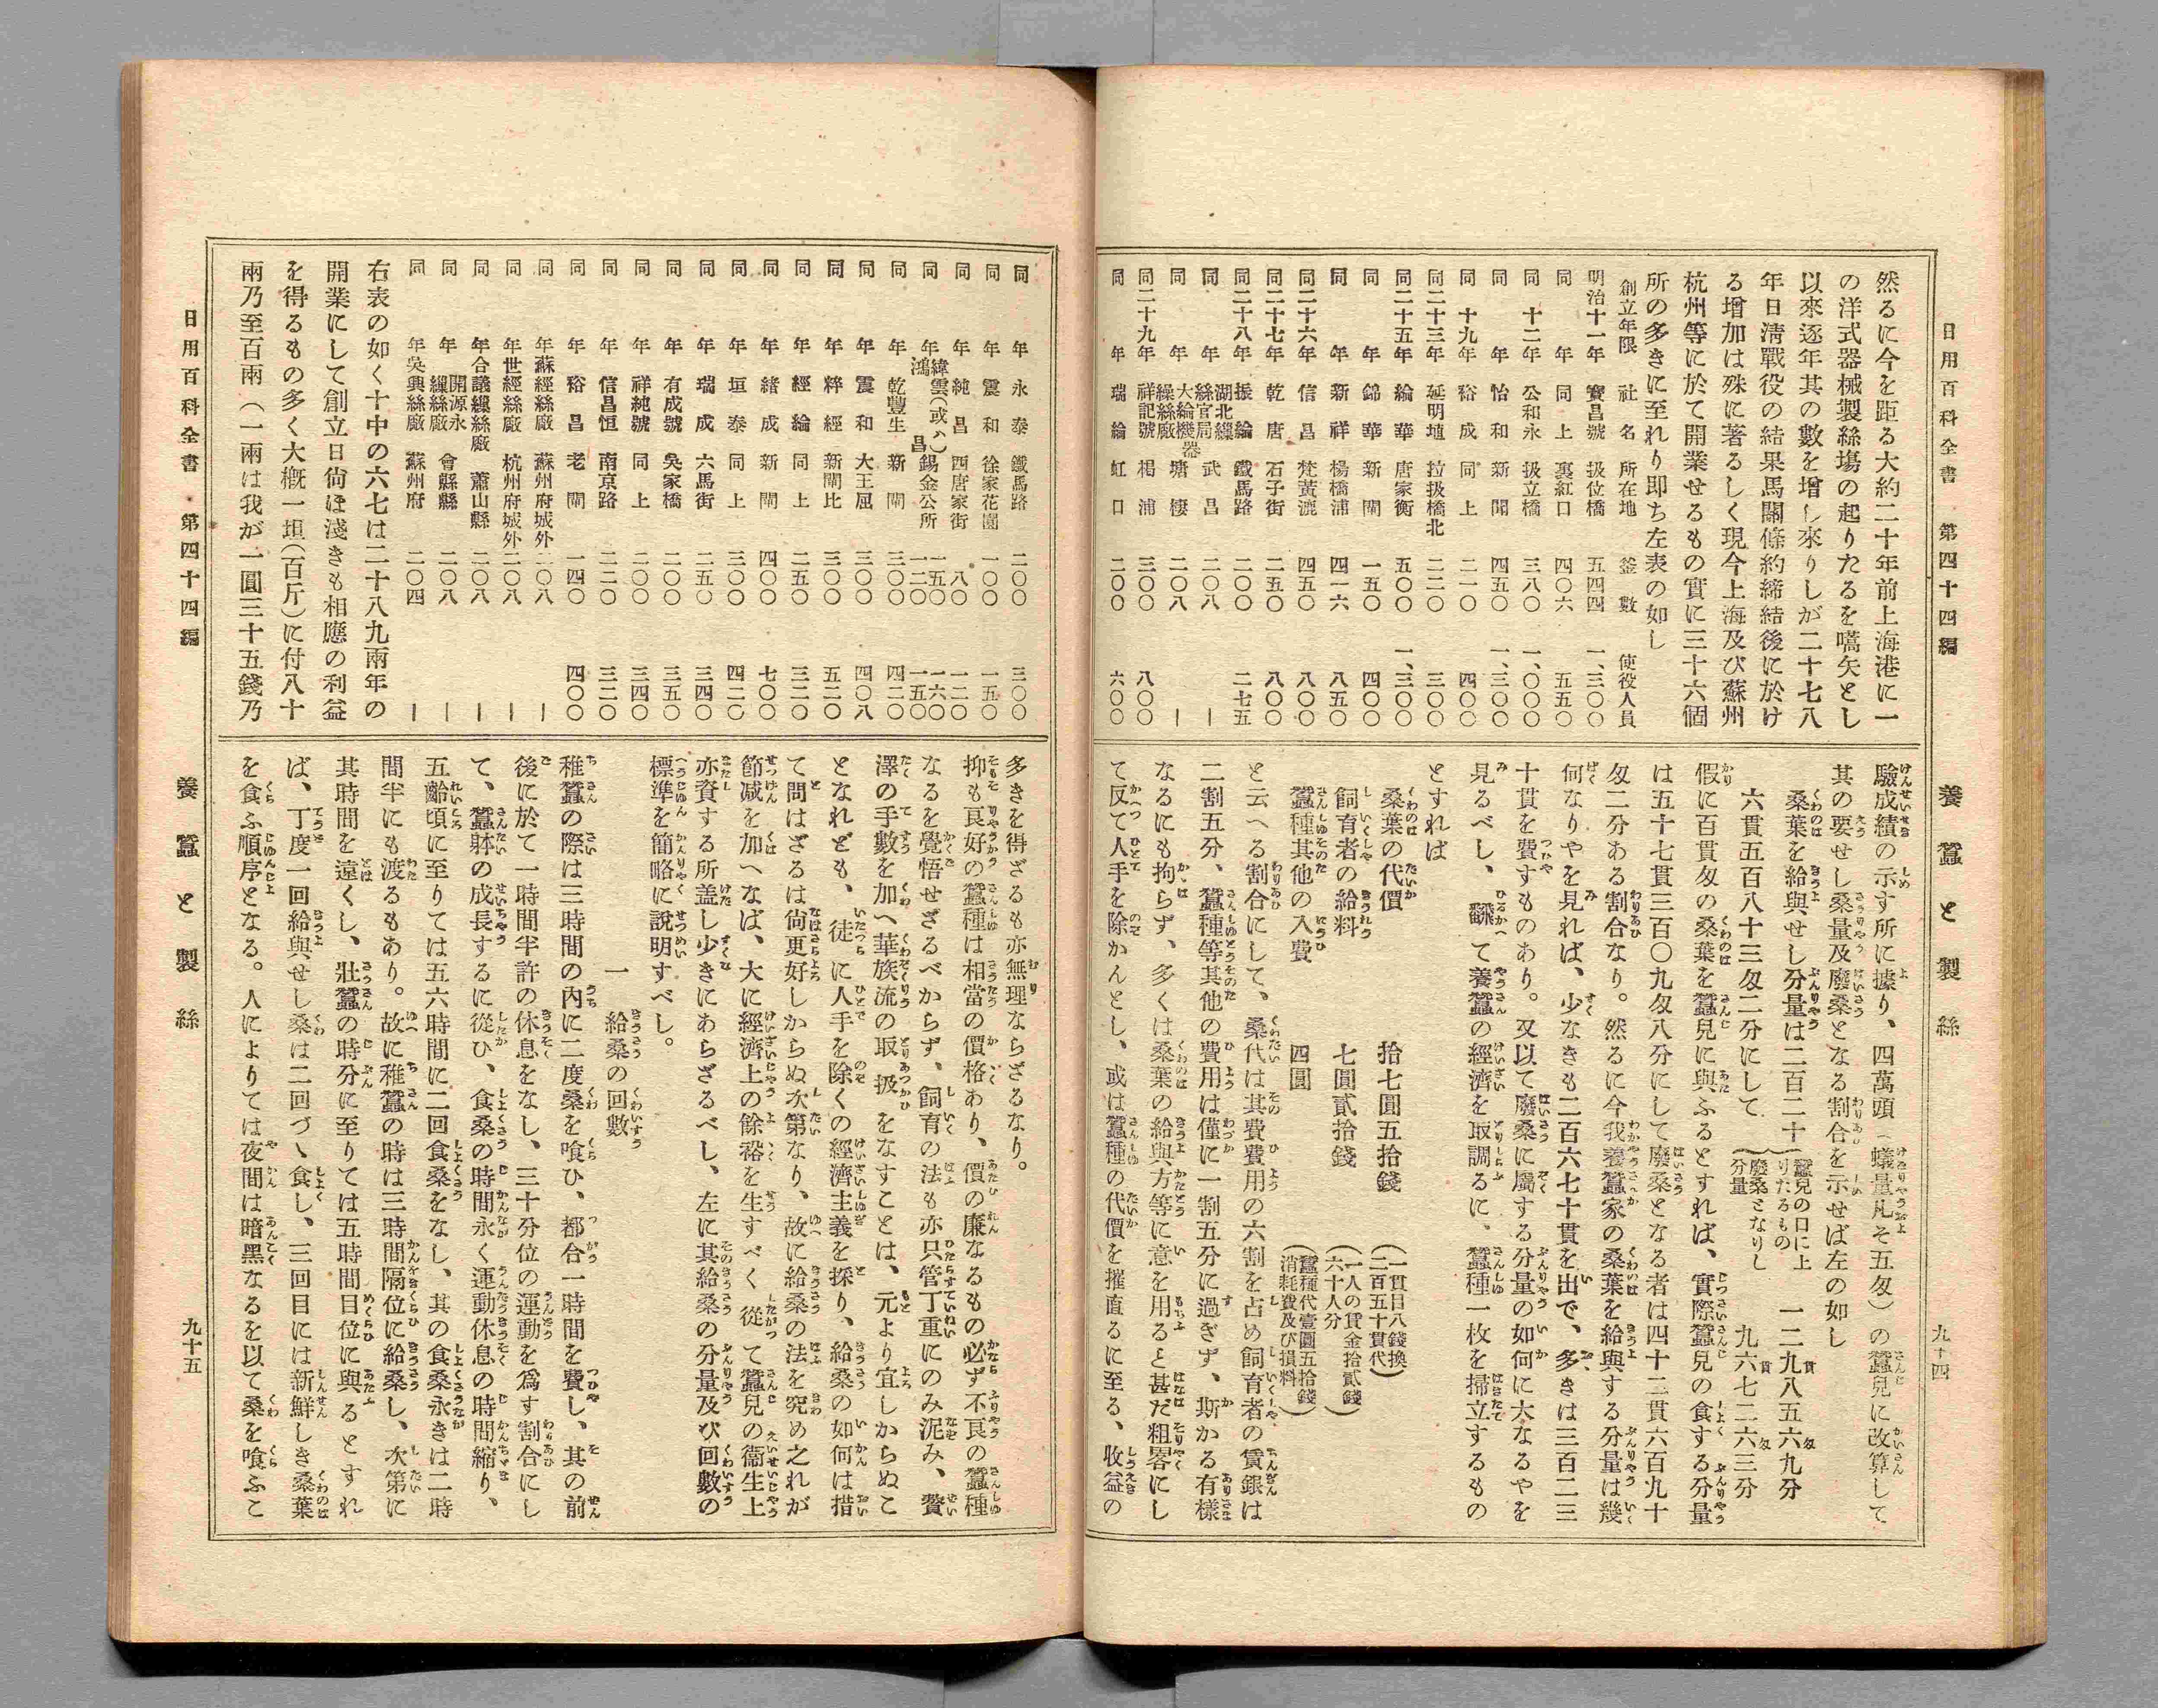 日用百科全書 第四十四編 養蠶と製絲 九十四
然るに今を距る大約二十年前上海港に一
の洋式器械製絲塲の起りたるを嚆矢とし
以來逐年其の數を增し來りしが二十七八
年日淸戰役の結果馬關條約締結後に於け
る增加は殊に著るしく現今上海及び蘇州
杭州等に於て開業せるもの實に三十六個
所の多きに至れり卽ち左表の如し
創立年限 社名 所在地 釜數 使役人員
明治十一年 寶昌號 扱位橋 五四四 一、三〇〇
同年 同上 裏紅口 四〇六 五五〇
同十二年 公和永 扱立橋 三八〇 一、〇〇〇
同年 怡和 新聞 四五〇 一、三〇〇
同十九年 裕成 同上 二一〇 四〇〇
同二十三年 延明埴 拉扱橋北 二二〇 三〇〇
同二十五年 綸華 唐家衡 五〇〇 一、三〇〇
同年 錦華 新閘 一五〇 四〇〇
同年 新祥 楊橋浦 四一六 八五〇
同二十六年 信昌 梵黃漉 四五〇 八〇〇
同二十七年 乾唐 石子街 二五〇 八〇〇
同二十八年 振綸 鐵馬路 二〇〇 二七五
同年 湖北繅絲官局 武昌 二〇八 ―
同年 大綸機器繰絲廠 塘棲 二〇八 ―
同二十九年 祥記號 楊浦 三〇〇 八〇〇
同年 瑞綸 虹口 二〇〇 六〇〇
驗成績の示す所に據り、四萬頭（蟻量凡そ五匁）の蠶兒に改算して
其の要せし桑量及廢桑となる割合を示せば左の如し
桑葉を給與せし分量は二百二十六貫五百八十三匁二分にして
蠶兒の口に上りたるもの 一二九貫八五六匁九分
廢桑となりし分量 九六貫七二六匁三分
假に百貫匁の桑葉を蠶兒に與ふるとすれば、實際蠶兒の食する分量
は五十七貫三百〇九匁八分にして廢桑となる者は四十二貫六百九十
匁二分ある割合なり。然るに今我養蠶家の桑葉を給與する分量は幾
何なりやを見れば、少なきも二百六七十貫を出で、多きは三百二三
十貫を費すものあり。又以て廢桑に屬する分量の如何に大なるやを
見るべし、飜て養蠶の經濟を取調るに、蠶種一枚を掃立するもの
とすれば
桑葉の代價 拾七圓五拾錢 （一貫目八錢換二百五十貫代）
飼育者の給料 七圓貳拾錢 （一人の賃金拾貳錢六十人分）
蠶種其他の入費 四圓 （蠶種代壹圓五拾錢消耗費及び損料）
と云へる割合にして、桑代は其費費用の六割を占め飼育者の賃銀は
二割五分、蠶種等其他の費用は僅に一割五分に過ぎず、斯かる有樣
なるにも拘らず、多くは桑葉の給與方等に意を用ると甚だ粗畧にし
て反て人手を除かんとし、或は蠶種の代價を摧直るに至る、收益の
日用百科全書 第四十四編 養蠶と製絲 九十五
同年 永泰 鐵馬路 二〇〇 三〇〇
同年 震和 徐家花園 一〇〇 一五〇
同年 純昌 四唐家街 八〇 一二〇
同年 緯雲（或ハ鴻昌） 錫金公所 一五〇 一二〇 一六〇 一五〇
同年 乾豐生 新閘 三〇〇 四二〇
同年 震和 大王屈 三〇〇 四〇八
同年 粹經 新閘比 三〇〇 五二〇
同年 經綸 同上 二五〇 三二〇
同年 緖成 新閘 四〇〇 七〇〇
同年 垣泰 同上 三〇〇 四二〇
同年 瑞成 六馬街 二五〇 三四〇
同年 有成號 吳家橋 二〇〇 三五〇
同年 祥純號 同上 二〇〇 三四〇
同年 信昌恒 南京路 二二〇 三二〇
同年 裕昌 老閘 一四〇 四〇〇
同年 蘇經絲廠 蘇州府城外 二〇八 ―
同年 世經絲廠 杭州府城外 二〇八 ―
同年 合議繅絲廠 蕭山縣 二〇八 ―
同年 開源永繅絲廠 會縣縣 二〇八 ―
同年 吳興絲廠 蘇州府 二〇四 ―
右表の如く十中の六七は二十八九兩年の
開業にして創立日尙ほ淺きも相應の利益
を得るもの多く大槪一坦（百斤）に付八十
兩乃至百兩（一兩は我が一圓三十五錢乃
多きを得ざるも亦無理ならざるなり。
抑も良好の蠶種は相當の價格あり、價の廉なるもの必ず不良の蠶種
なるを覺悟せざるべからず、飼育の法も亦只管丁重にのみ泥み、贅
澤の手數を加へ華族流の取扱をなすことは、元より宜しからぬこ
となれども、徒に人手を除くの經濟主義を採り、給桑の如何は措
て問はざるは尙更好しからぬ次第なり、故に給桑の法を究め之れが
節减を加へなば、大に經濟上の餘裕を生すべく從て蠶兒の衞生上
亦資する所盖し少きにあらざるべし、左に其給桑の分量及び回數の
標準を簡略に說明すべし。
一 給桑の回數
稚蠶の際は三時間の內に二度桑を喰ひ、都合一時間を費し、其の前
後に於て一時間半許の休息をなし、三十分位の運動を爲す割合にし
て、蠶躰の成長するに從ひ、食桑の時間永く運動休息の時間縮り、
五齡頃に至りては五六時間に二回食桑をなし、其の食桑永きは二時
間半にも渡るもあり。故に稚蠶の時は三時間隔位に給桑し、次第に
其時間を遠くし、壯蠶の時分に至りては五時間目位に與るとすれ
ば、丁度一回給與せし桑は二回づゝ食し、三回目には新鮮しき桑葉
を食ふ順序となる。人によりては夜間は暗黑なるを以て桑を喰ふこ